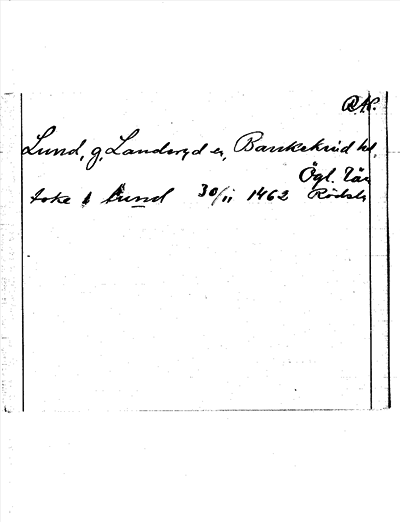 R.A.
Lund, g, Landeryd sn, Bankekind hd,
Ögl. län
Toke i Lund 30/11 1462 Rödsle